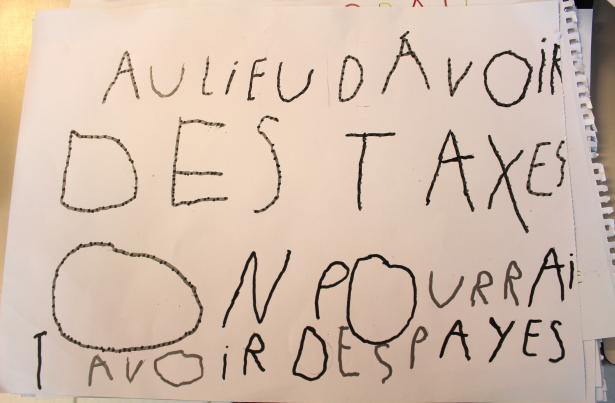 AU LiEU DÀVOiR
DES TAXES
ON POURRAi
T AVOiR DES PAYES